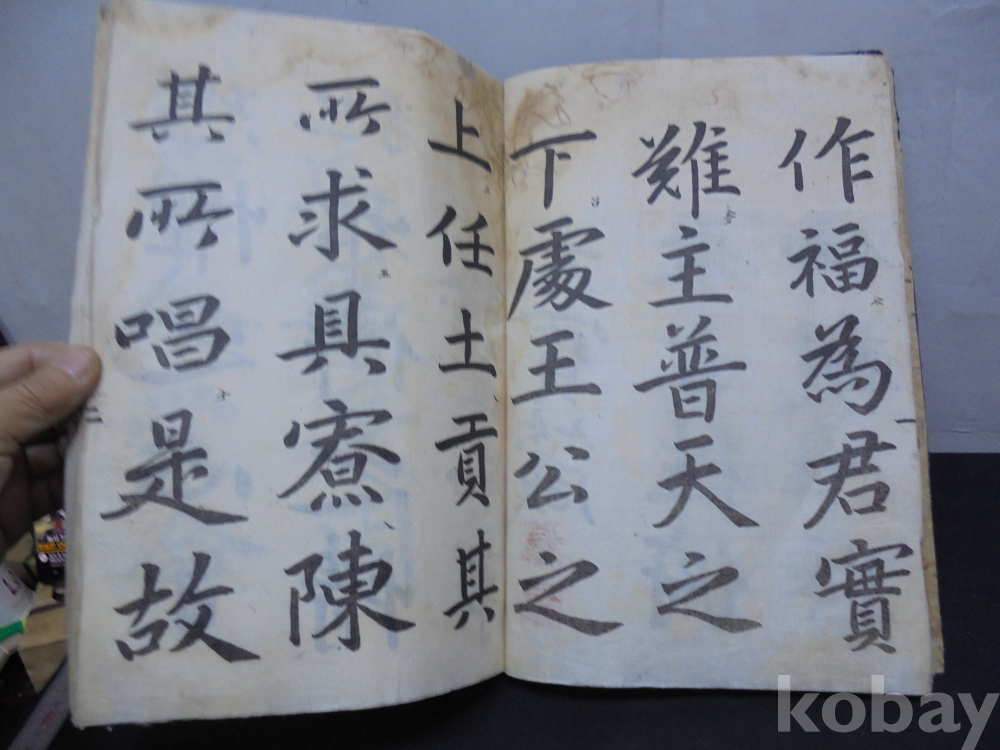 作福為君實
難主普天之
下處王公之
上任土貢其
所求具寮陳
其所唱是故
一
二
kobay